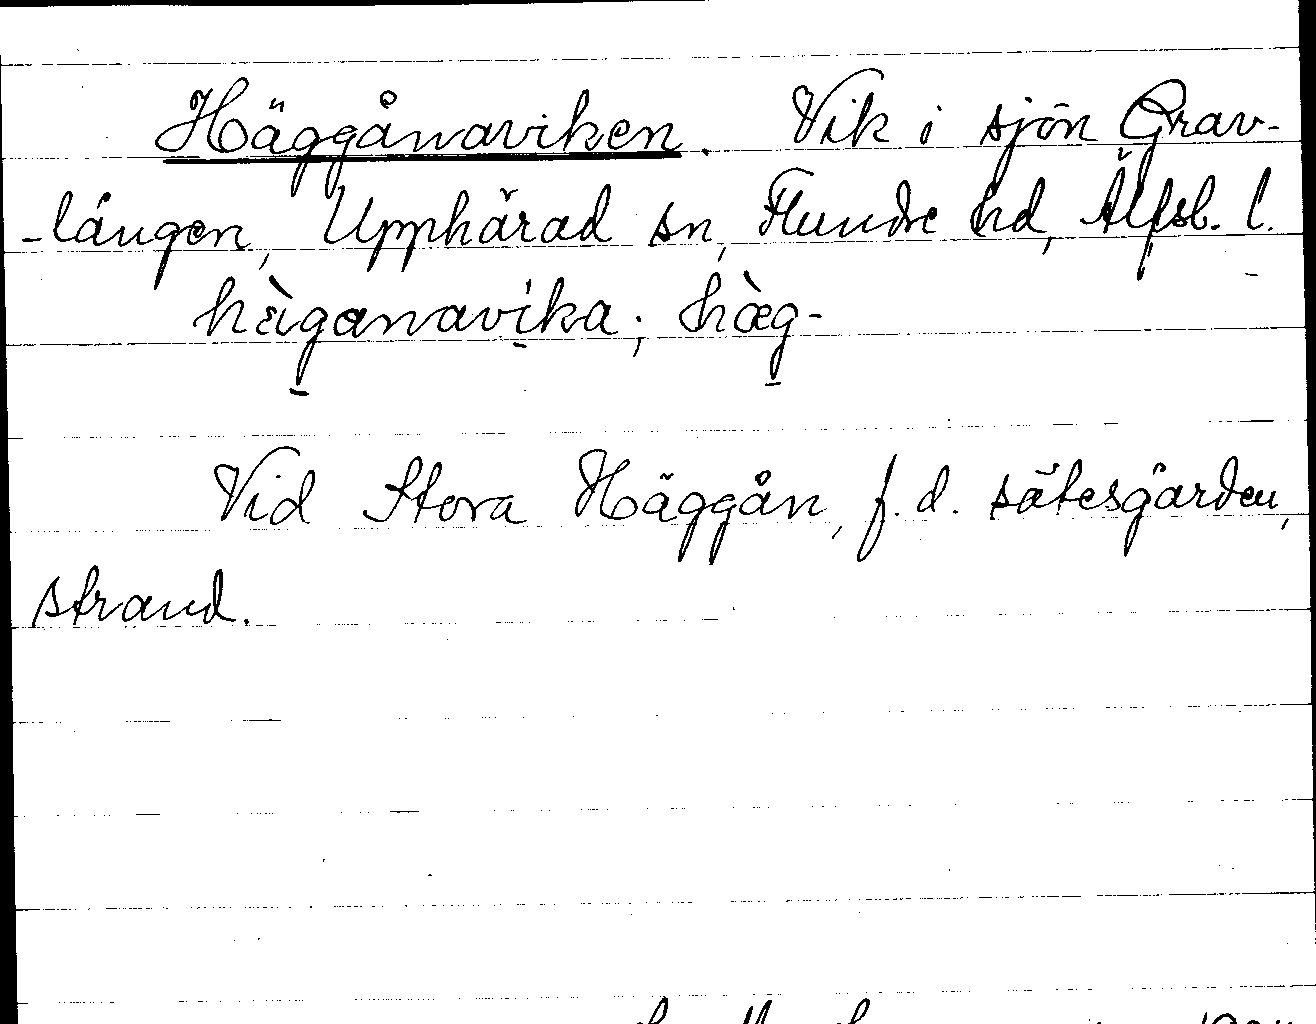 Häggånaviken. Vik i sjön Grav-
-lången, Upphärad sn, Flundre hd, Älfsb. l.
hàganavika; hæ̀g-
Vid Stora Häggån, f.d. sätesgården,
strand.